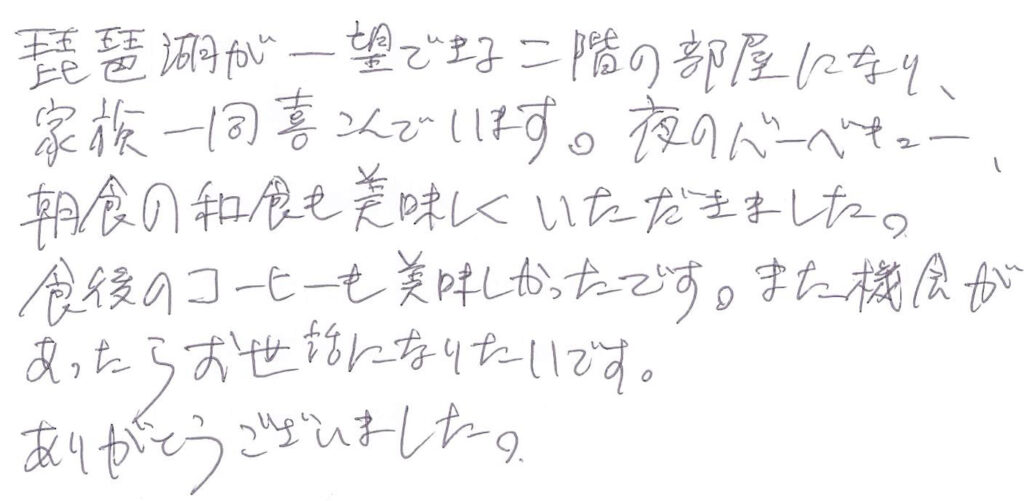 琵琶湖が一望できる二階の部屋になり、
家族一同喜こんでいます。夜のバーベキュー、
朝食の和食も美味しくいただきました。
食後のコーヒーも美味しかったです。また機会が
あったらお世話になりたいです。
ありがとうございました。